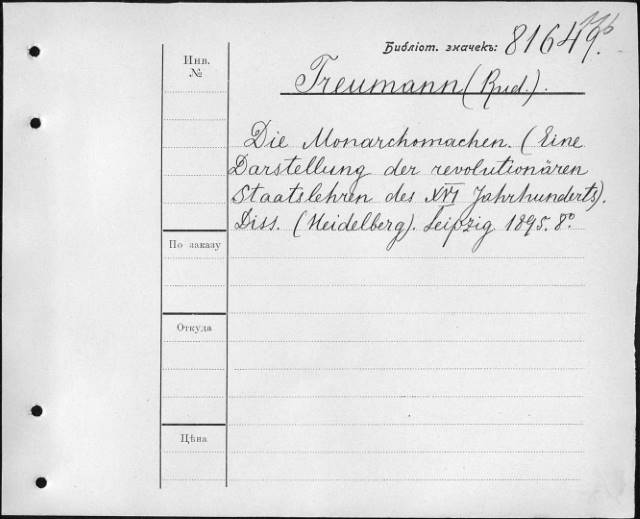 Библiот. значекъ: 81649.
Инв.
№
Treumann (Rud.).
Die Monarchomachen. (Eine
Darstellung der revolutionären
Staatslehren des XVI Jahrhunderts).
Diss. (Heidelberg). Leipzig 1895. 8°
По заказу
Откуда
Цѣна